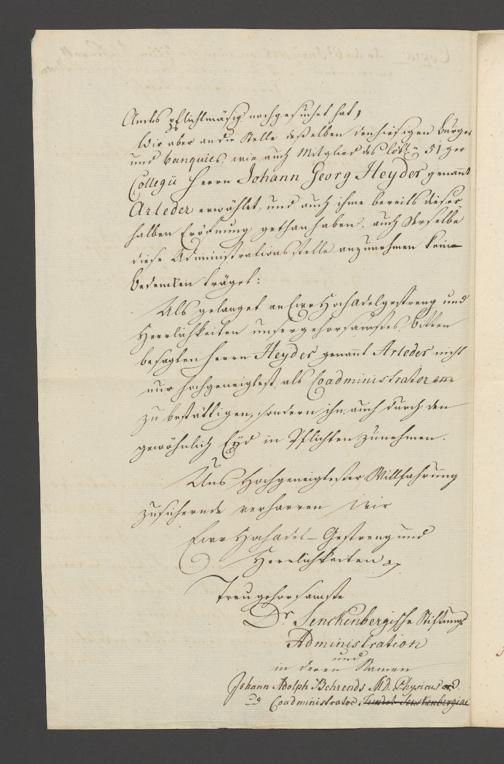 Amts pflichtmäsig nachgesuchet hat,
Wir aber an die Stelle deßelben den hiesigen Burger
und banquier, wie auch Mitglied des löbl. 51 ger
Collegii Herrn Johann Georg Heyder genannt
Arleder erwählet, und auch ihme bereits dieser
halben Eröfnung gethan haben, auch derselbe
diese Administrationsstelle anzunehmen kein
bedencken träget:
Als gelanget an Euer Hochadelgestreng und
Herrlichkeiten unser gehorsamstes bitten
besagten Herrn Heyder genannt Arleder nicht
nur hochgeneigtest als Coadministratorem
zu bestättigen, sondern ihn auch durch den
gewöhnlich Eyd in Pflichten zunehmen.
Uns hochgeneigtester Willfahrung
zusichernde verharren wir
Euer Hochadel- Gestreng und
Herrlichkeiten
Treugehorsamste
Dr Senckenbergische Stiftungs
Administration
und
in deren Namen
Johann Adolph Behrends MD. Physicus
Coadministrator